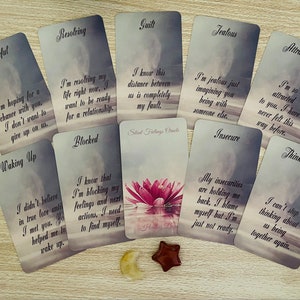 Resolving
I'm resolving my
life right now, I
want to be ready
for a relationship.
Guilt
I know this
distance between
us is completely
my fault.
Jealous
I'm jealous just
imagining you
being with
someone else.
hoping for a
chance with you,
I don't want to
give up on us.
attracted
to you. I have
never felt this
before.
Waking Up
I didn't believe
in true love until
I met you.
helped me to
wake up.
Blocked
I know that
I'm blocking my
feelings and
actions. I need
to find myself.
Silent Feelings Cards
Insecure
My insecurities
are holding me
back. I blame
myself but I'm
just not ready.
I can't stop
thinking about
us being
together again.